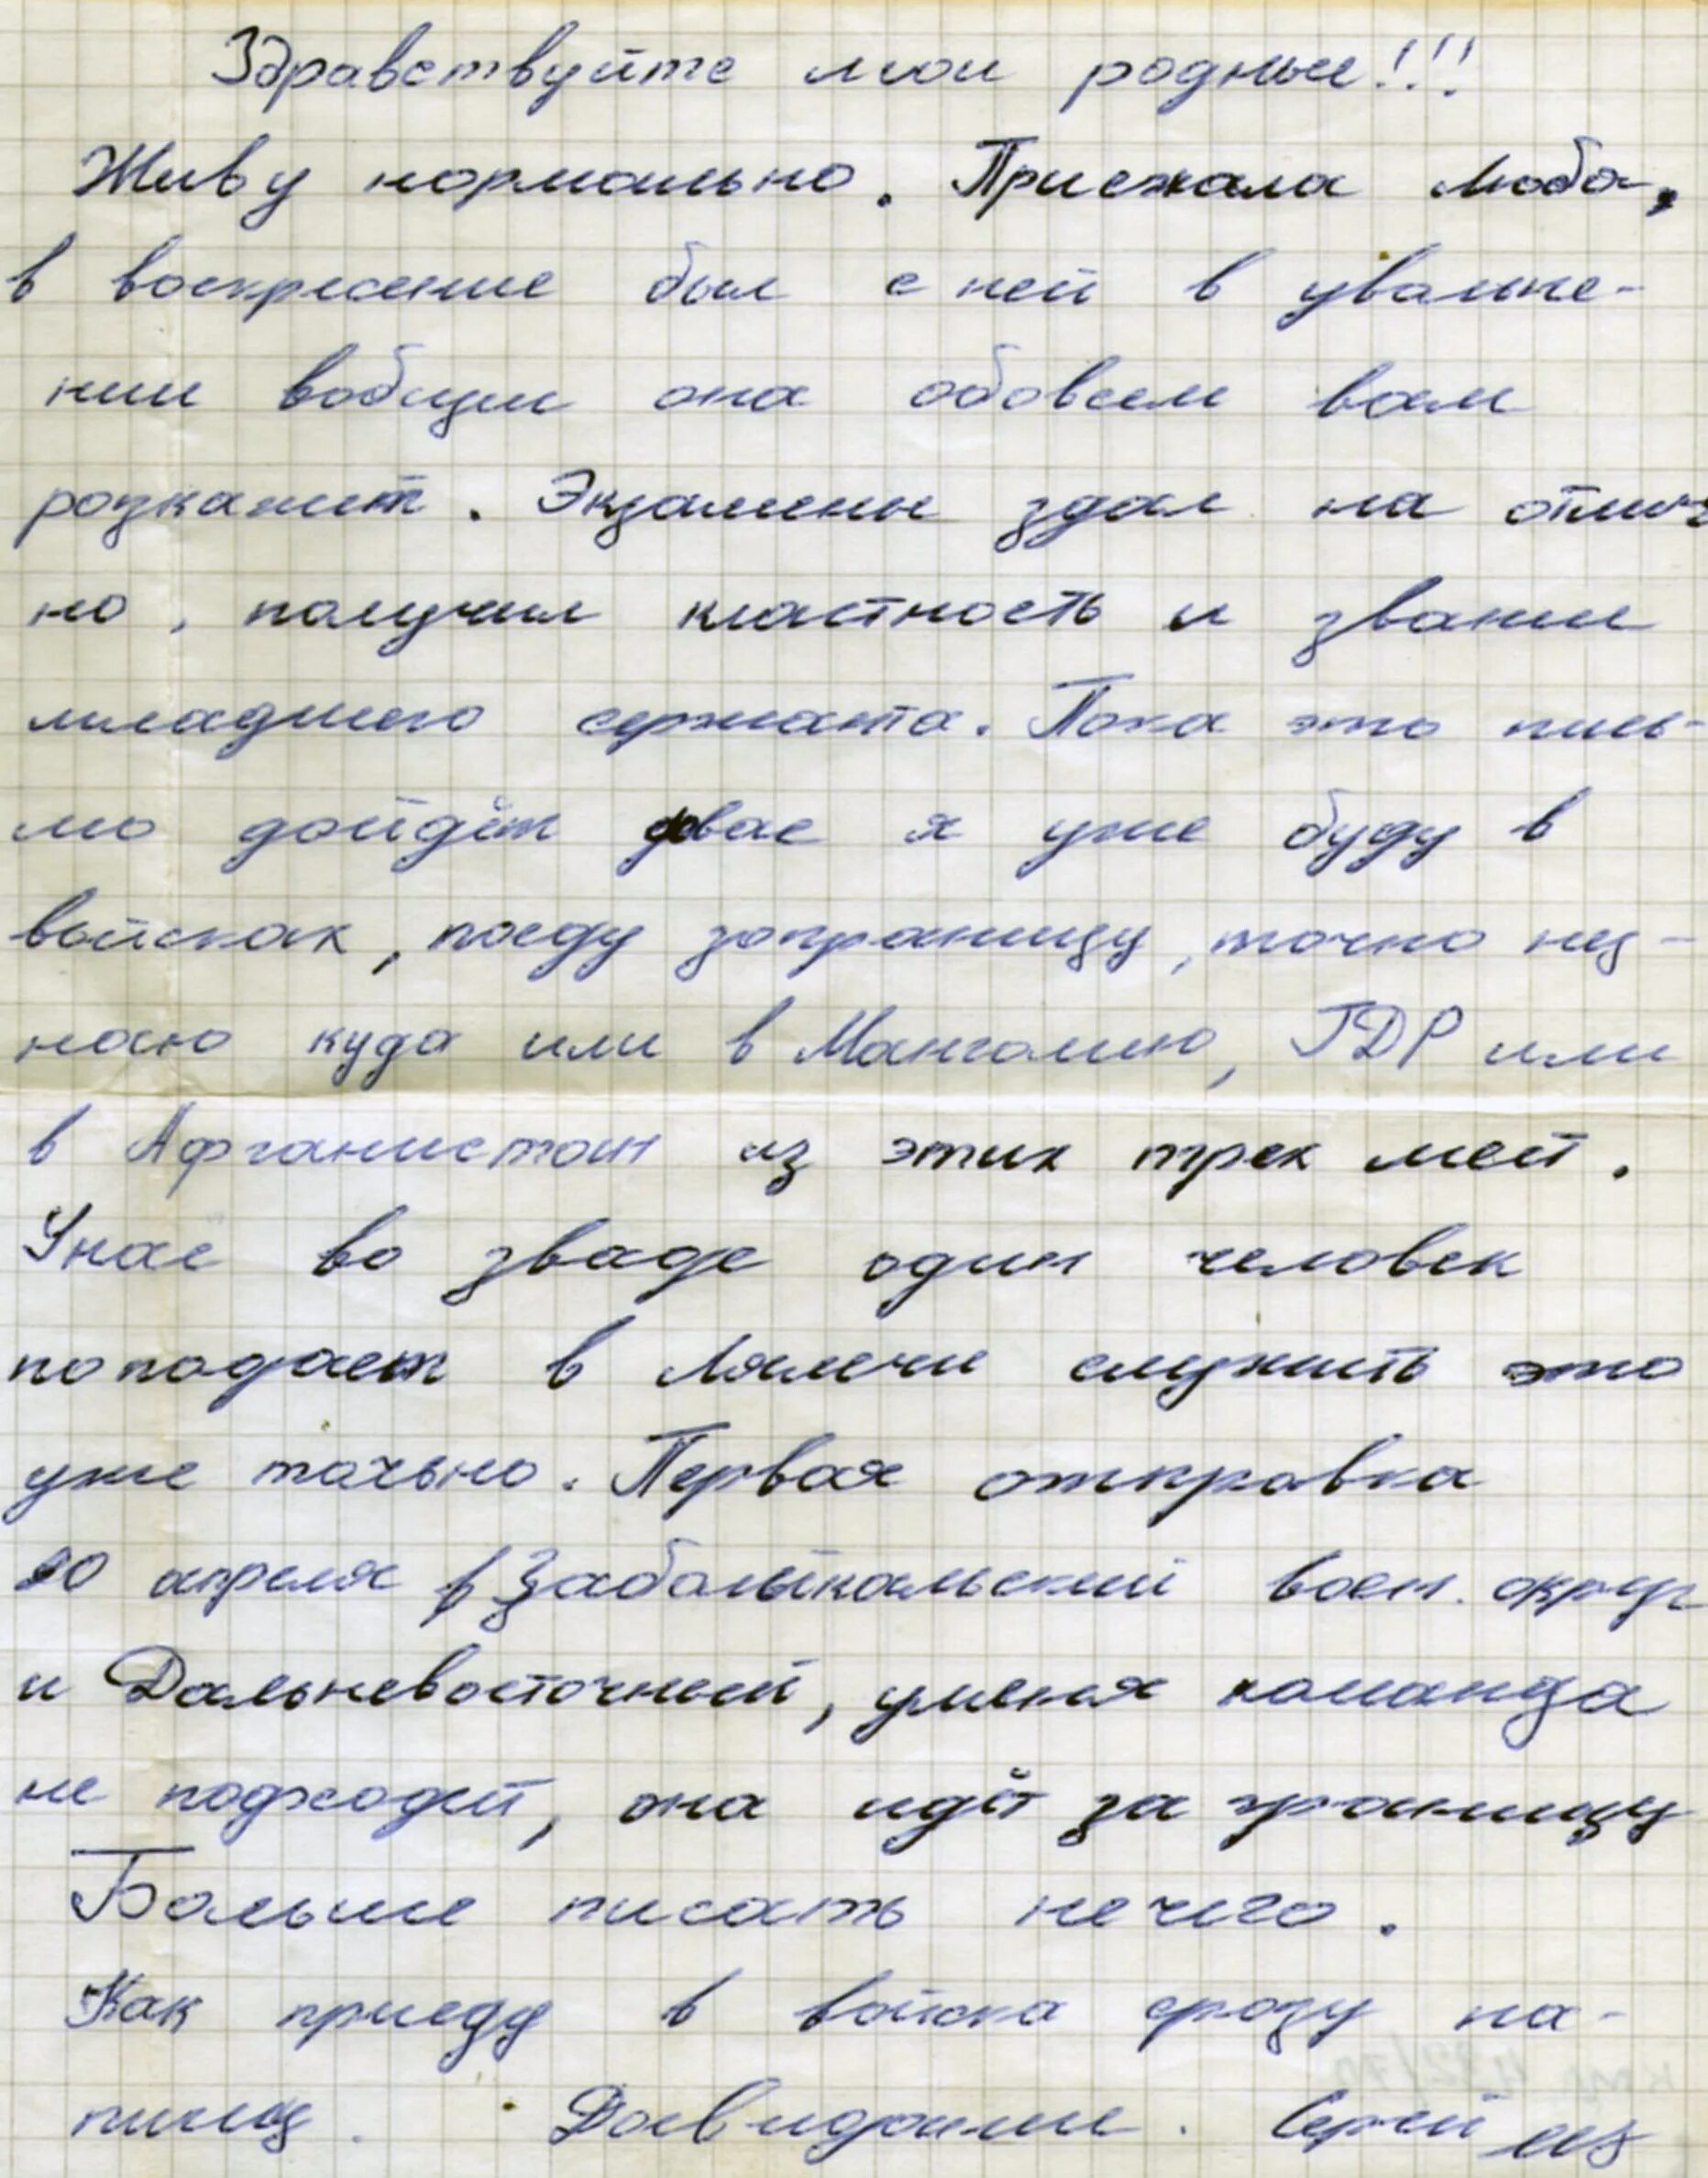 Здравствуйте мои родные!!!
Живу нормально. Приежала Люба,
в воскресение был с ней в увалне-
нии вобщем она обовсем вам
розкажит. Экзамены здал на отлич
но, получил кластность и звание
младшего сержанта. Пока это пись-
мо дойдёт двас я уже буду в
войсках, поеду заграницу, точно нез-
наю куда или в Манголию, ГДР или
в Афганистан из этих трех мест.
Унас во зваде один человек
поподает в служить это
уже точьно. Первая отправка
20 апреля в Забайкальский воен. округ
и Дальневосточный, уменя команда
не подходит, она идёт за границу
Больше писать нечиго.
Как приеду в войска сразу на-
пишу. Досвидание. Сергей